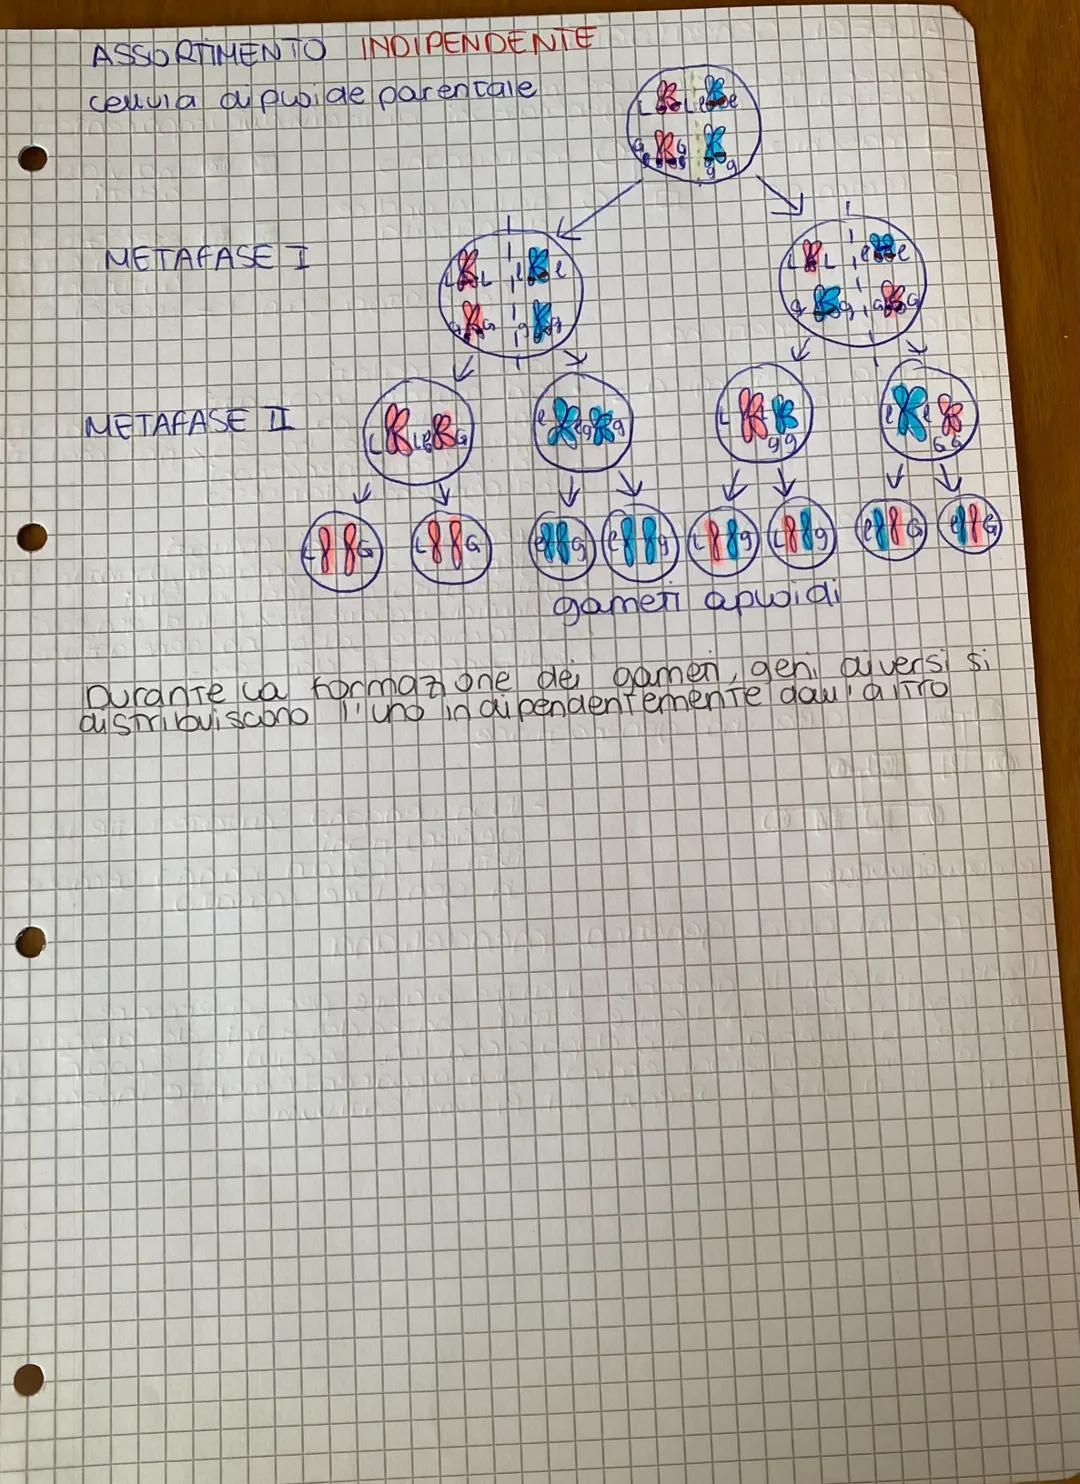 ASSORTIMENTO INDIPENDENTE
cellula diploide parentale
L L e e
G G g g
METAFASE I
L L e e
G G g g
L L e e
g g G G
METAFASE II
L L G G
e e g g
L L g g
e e G G
L G
L G
e g
e g
L g
L g
e G
e G
gameti aploidi
Durante la formazione dei gameti, geni diversi si
distribuiscono l'uno indipendentemente dall'altro